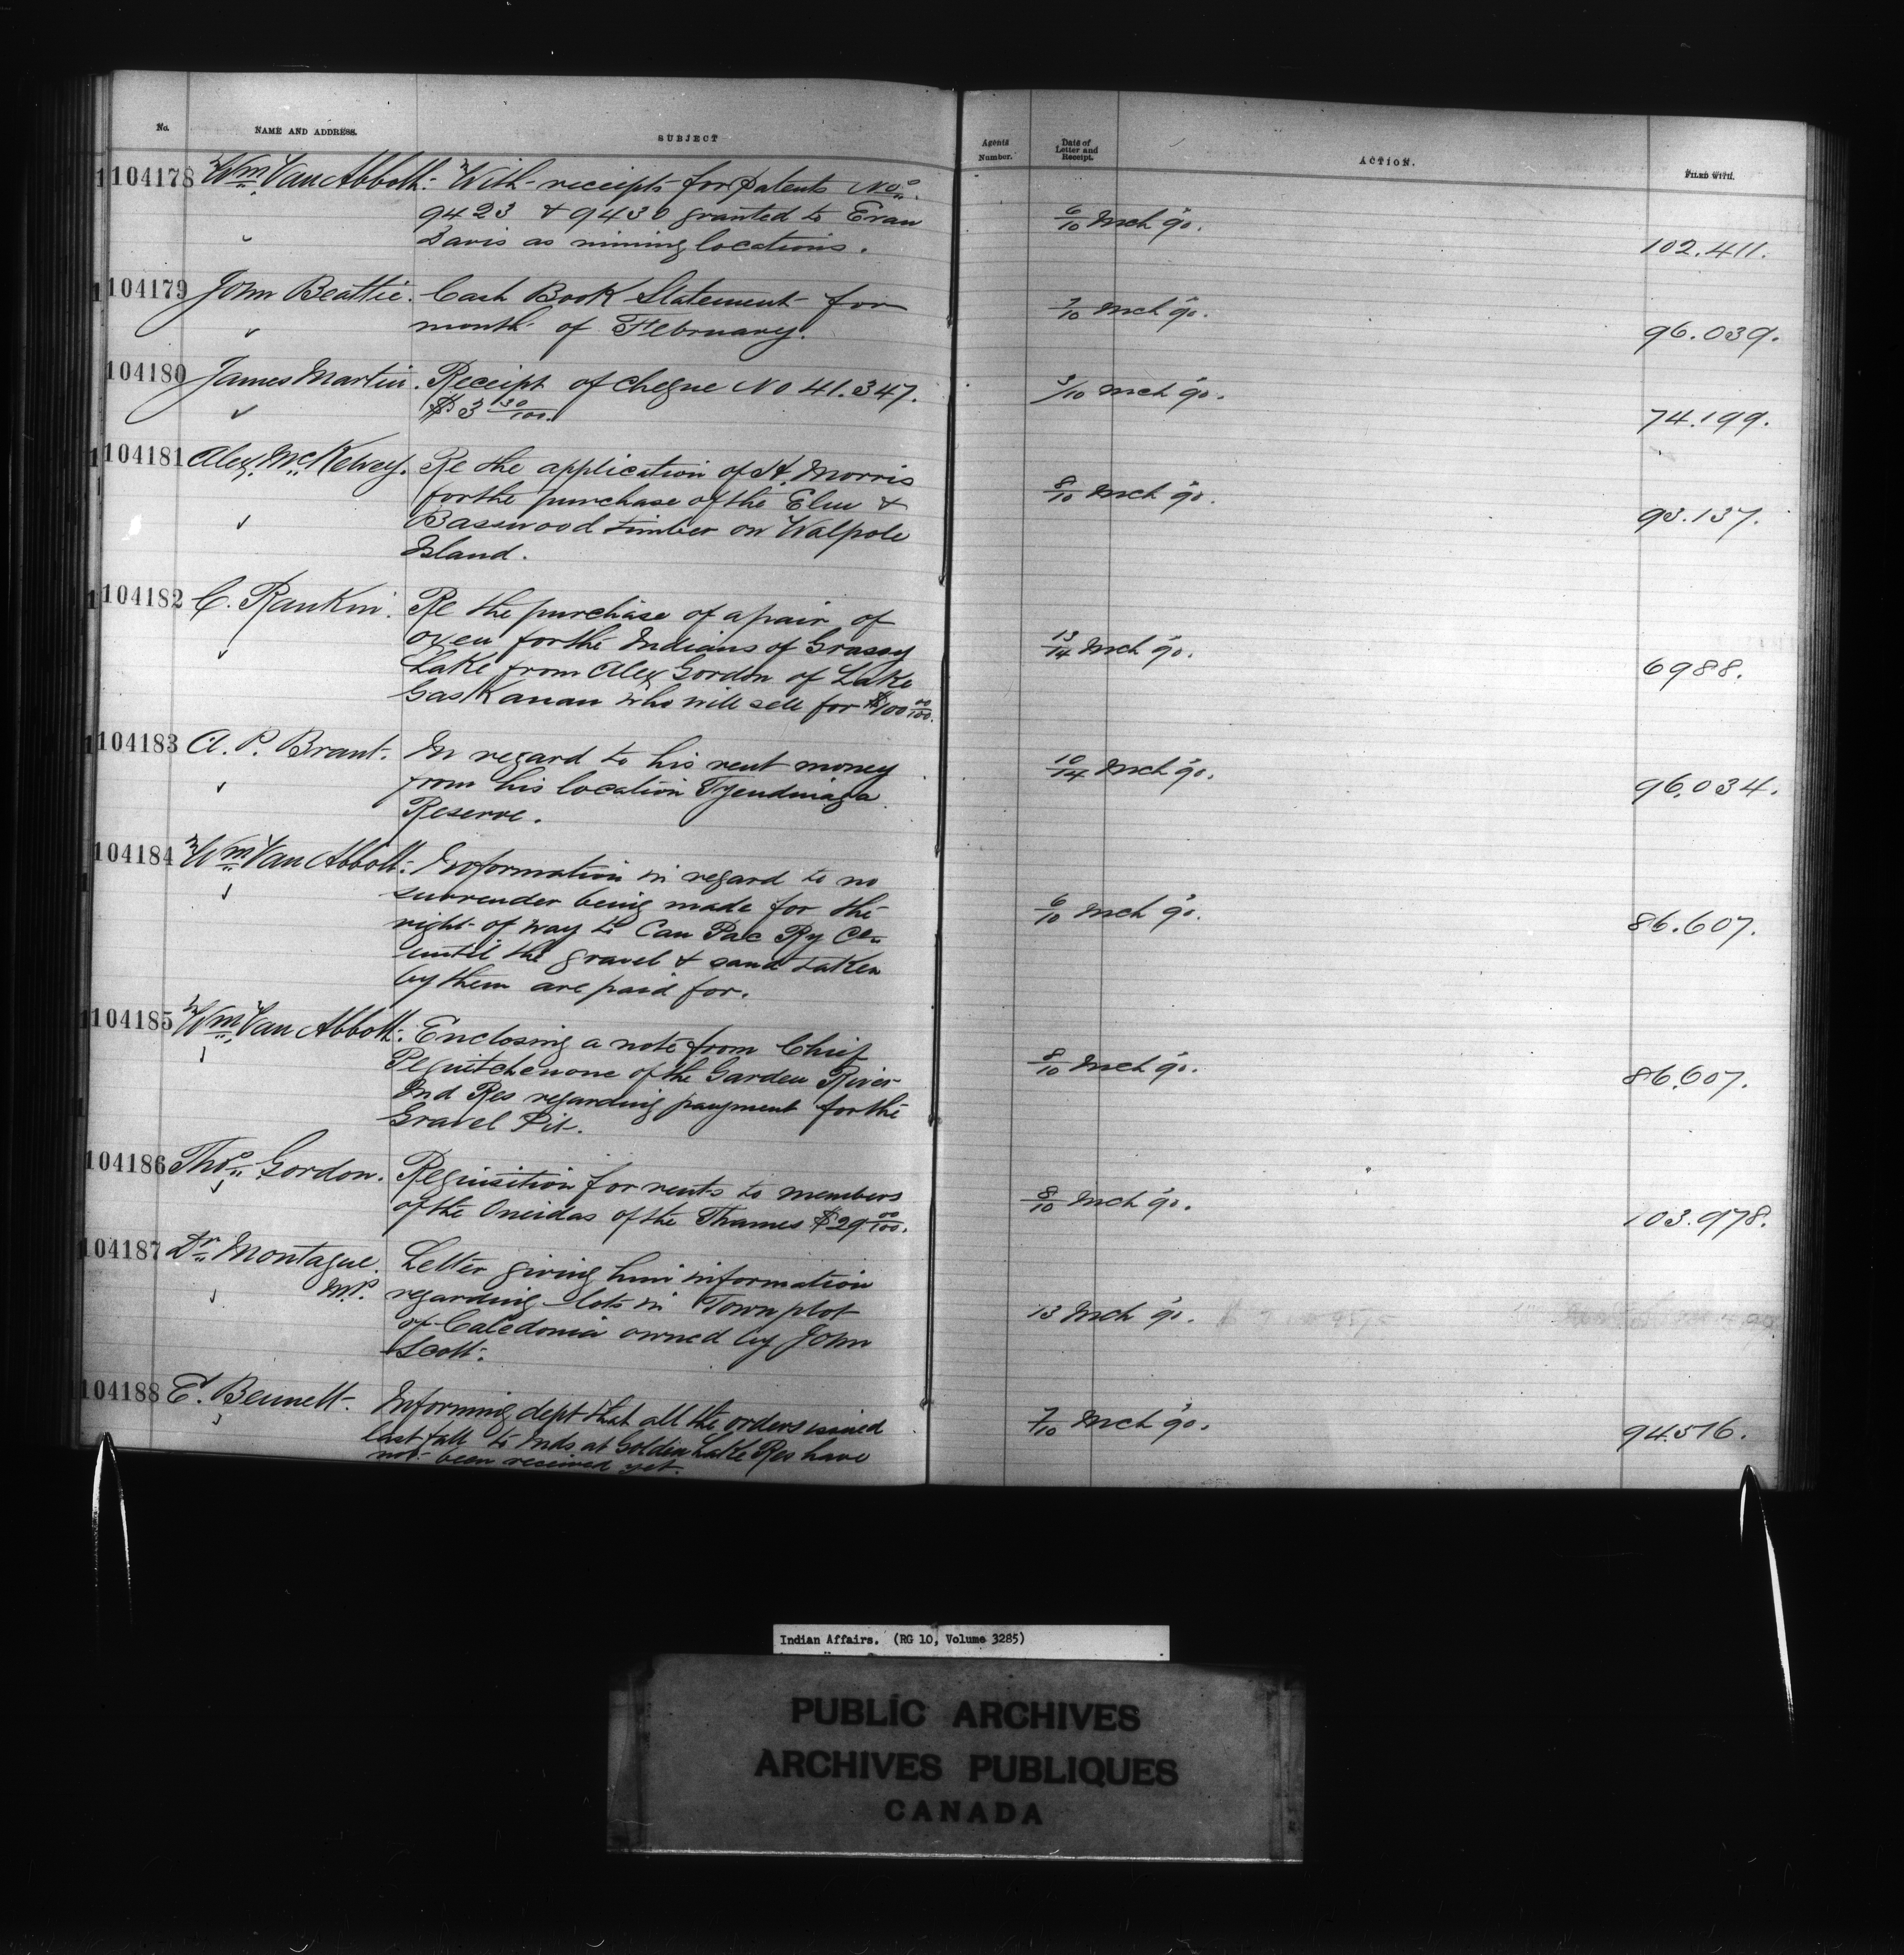 No. NAME AND ADDRESS. SUBJECT Agents Number. Date of Letter and Receipt. ACTION. FILED WITH.
104178 Wm. Van Abbott. With receipts for Patents Nos.
9423 & 9430 granted to Evan
Davis as mining locations.
6/10 Mch 90. 102.411.
104179 John Beattie. Cash Book Statement for
month of February.
7/10 Mch 90. 96.039.
104180 James Martin. Receipt of cheque No 41.347.
$3 30/100.
3/10 Mch 90. 74.199.
104181 Alex. McKelvey. Re the application of H. Morris
for the purchase of the Elm &
Basswood timber on Walpole
Island.
8/10 Mch 90. 93.137.
104182 C. Rankin. Re the purchase of a pair of
oxen for the Indians of Grassy
Lake from Alex Gordon of Lake
Gaskanan who will sell for $100 00/100.
13/14 Mch 90. 6988.
104183 A. P. Brant. In regard to his rent money
from his location Tyendinaga
Reserve.
10/14 Mch 90. 96.034.
104184 Wm. Van Abbott. Information in regard to no
surrender being made for the
right of way to Can Pac Ry Co.
until the gravel & sand taken
by them are paid for.
6/10 Mch 90. 86.607.
104185 Wm. Van Abbott. Enclosing a note from Chief
of the Garden River
Ind Res regarding payment for the
Gravel Pit.
8/10 Mch 90. 86.607.
104186 Thos. Gordon. Requisition for rents to members
of the Oneidas of the Thames $29 00/100.
8/10 Mch 90. 103.978.
104187 Dr. Montague. Letter giving him information
M.P. regarding lots in Town plot
of Caledonia owned by John
Scott.
13 Mch 90.
104188 E. Bennett. Informing dept that all the orders issued
last fall to Inds at Golden Lake Res have
not been received yet.
7/10 Mch 90. 94.576.
Indian Affairs. (RG 10, Volume 3285)
PUBLIC ARCHIVES
ARCHIVES PUBLIQUES
CANADA